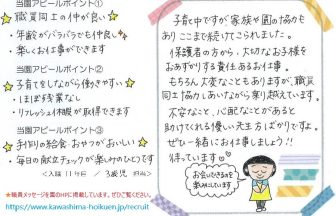 当園アピールポイント①
職員同士の仲が良い
・年齢がバラバラでも仲良し
・楽しくお仕事ができます
当園アピールポイント②
子育てをしながら働きやすい
・ほぼ残業なし
・リフレッシュ休暇が取得できます
当園アピールポイント③
手作りの給食・おやつがおいしい
・毎日の献立チェックが楽しみのひとつです
<入職11年目 / 3歳児 担当>
★職員メッセージを園のHPに掲載しています。ぜひご覧ください。
https://www.kawashima-hoikuen.jp/recruit
子育て中ですが家族や園の協力も
あり ここまで続けてこられました。
保護者の方から、大切なお子様を
おあずかりする責任あるお仕事。
もちろん大変なこともありますが、職員
同士協力しあいながら乗り越えています。
不安なこと、心配なことがあると
助けてくれる優しい先生方ばかりですよ。
ぜひ一緒にお仕事しましょう!!
待っています
お会いできるのを
楽しみにしています